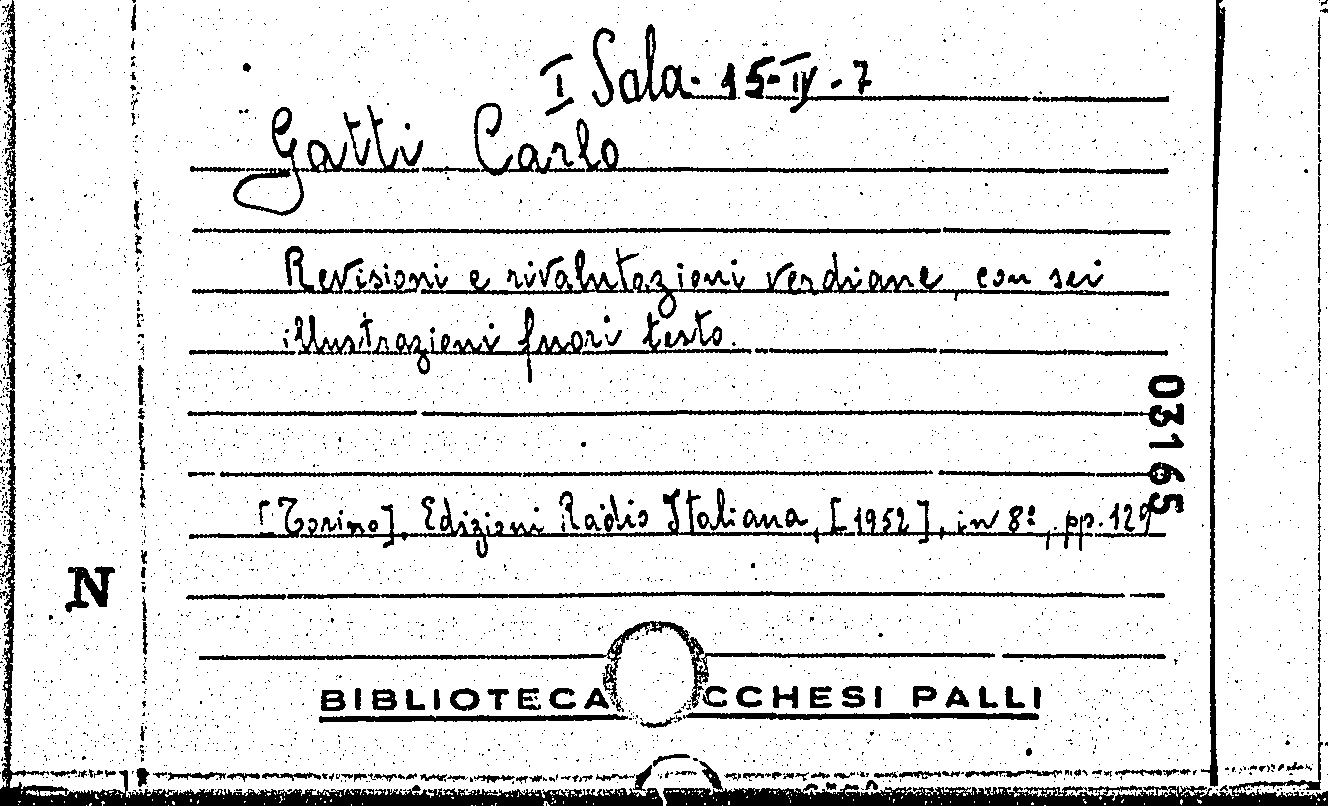 I Sala - 15-IV-7
Gatti Carlo
Revisioni e rivalutazioni verdiane, con sei
illustrazioni fuori testo.
03165
[Torino], Edizioni Radio Italiana, [1952], in 8º, pp. 129
N
BIBLIOTECA CCHESI PALLI